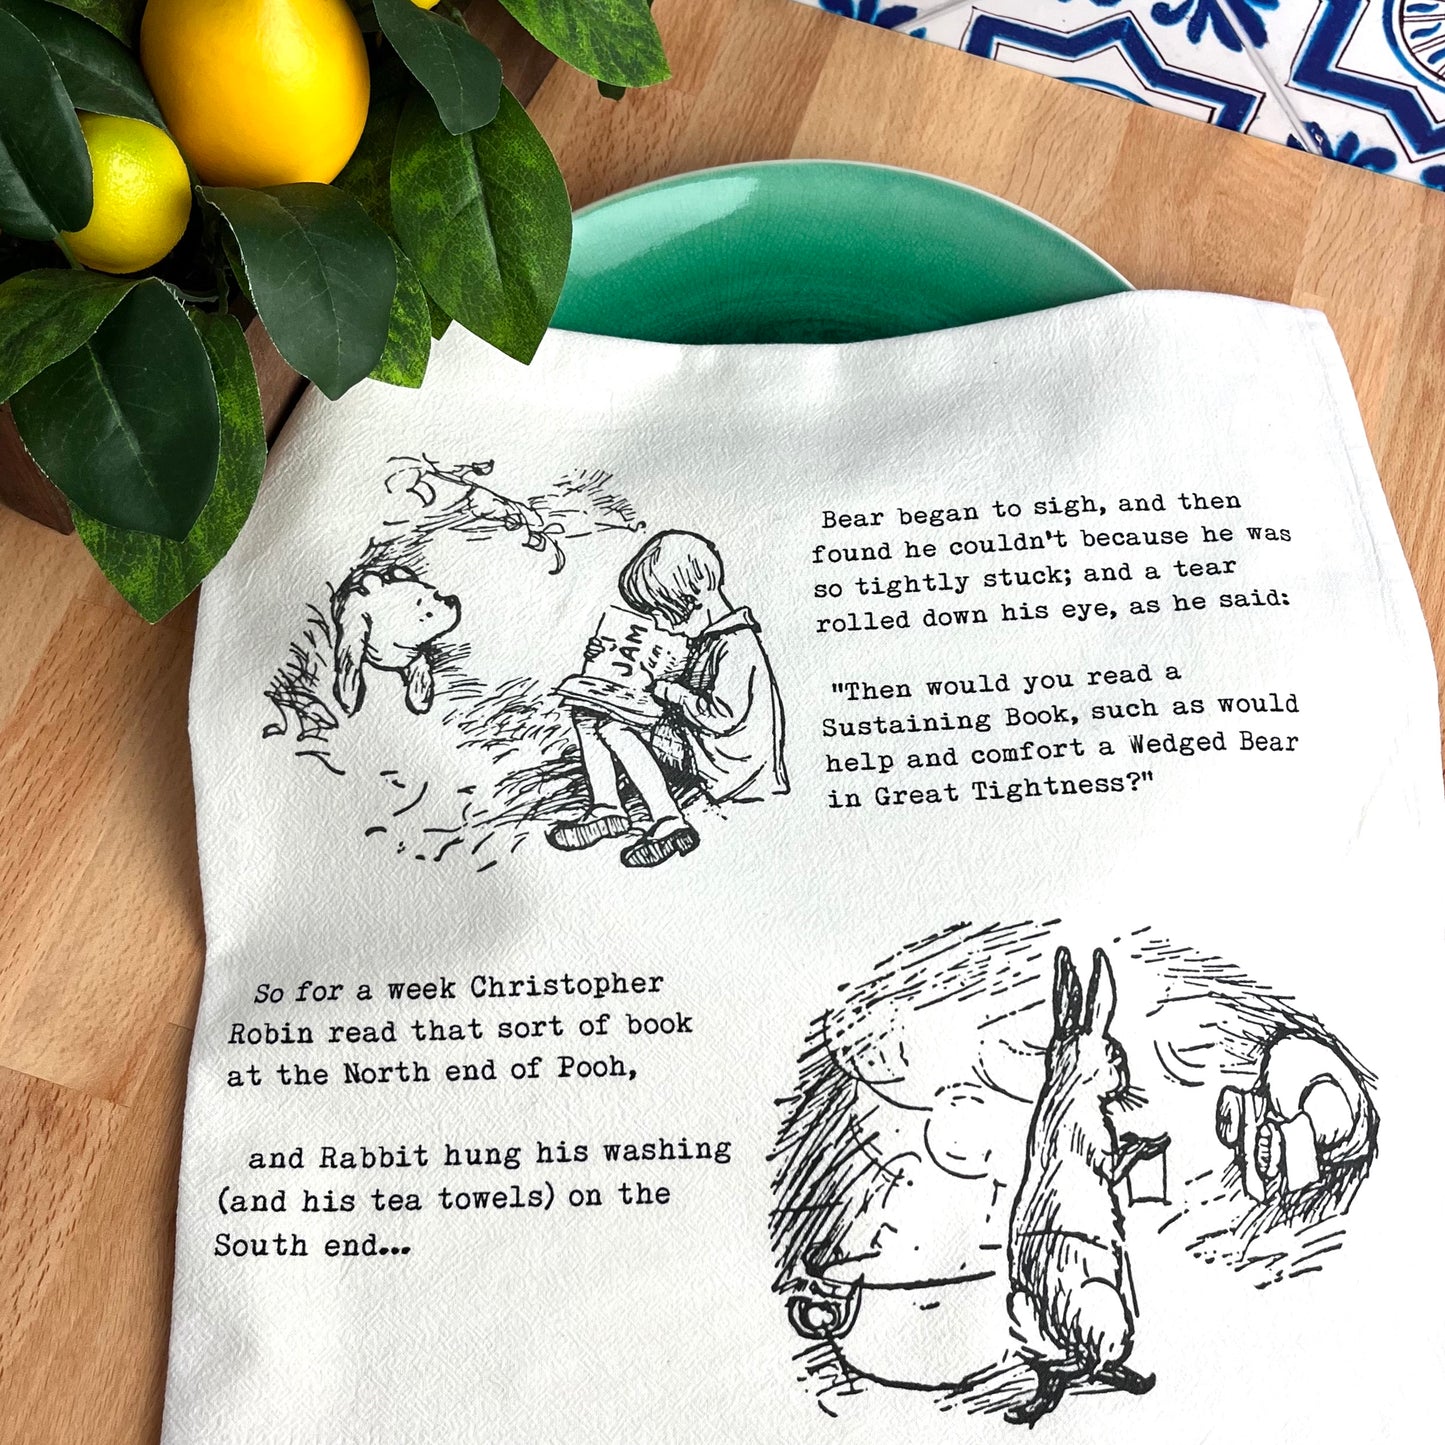 Bear began to sigh, and then
found he couldn't because he was
so tightly stuck; and a tear
rolled down his eye, as he said:
"Then would you read a
Sustaining Book, such as would
help and comfort a Wedged Bear
in Great Tightness?"
JAM
Jam
So for a week Christopher
Robin read that sort of book
at the North end of Pooh,
and Rabbit hung his washing
(and his tea towels) on the
South end...